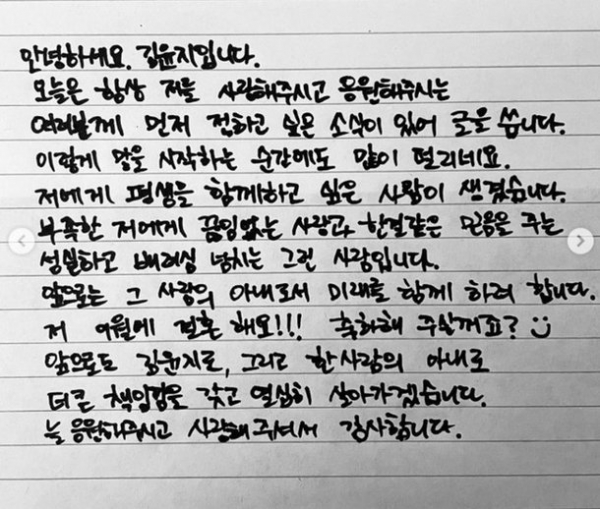 안녕하세요. 김윤지입니다.
오늘은 항상 저를 사랑해주시고 응원해주시는
여러분께 먼저 전하고 싶은 소식이 있어 글을 씁니다.
이렇게 말을 시작하는 순간에도 많이 떨리네요.
저에게 평생을 함께하고 싶은 사람이 생겼습니다.
부족한 저에게 끊임없는 사랑과, 한결같은 믿음을 주는
성실하고 배려심 넘치는 그런 사람입니다.
앞으로는 그 사람의 아내로서 미래를 함께 하려 합니다.
저 9월에 결혼 해요!!! 축하해 주실꺼죠? :)
앞으로도 김윤지로, 그리고 한 사람의 아내로
더 큰 책임감을 갖고 열심히 살아가겠습니다.
늘 응원해주시고 사랑해주셔서 감사합니다.